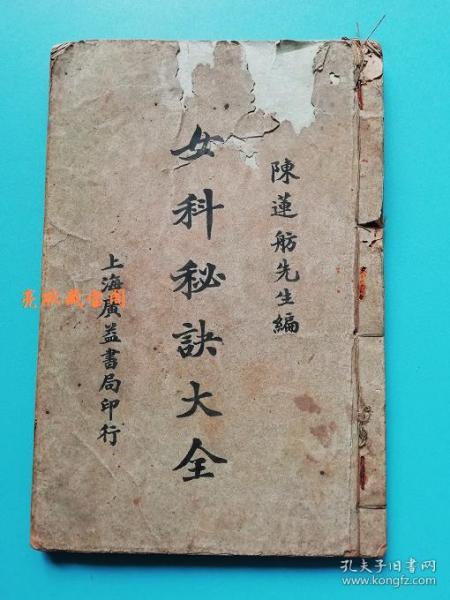 陳蓮舫先生編
女科秘訣大全
上海廣益書局印行
孔夫子旧书网
www.kongfz.com